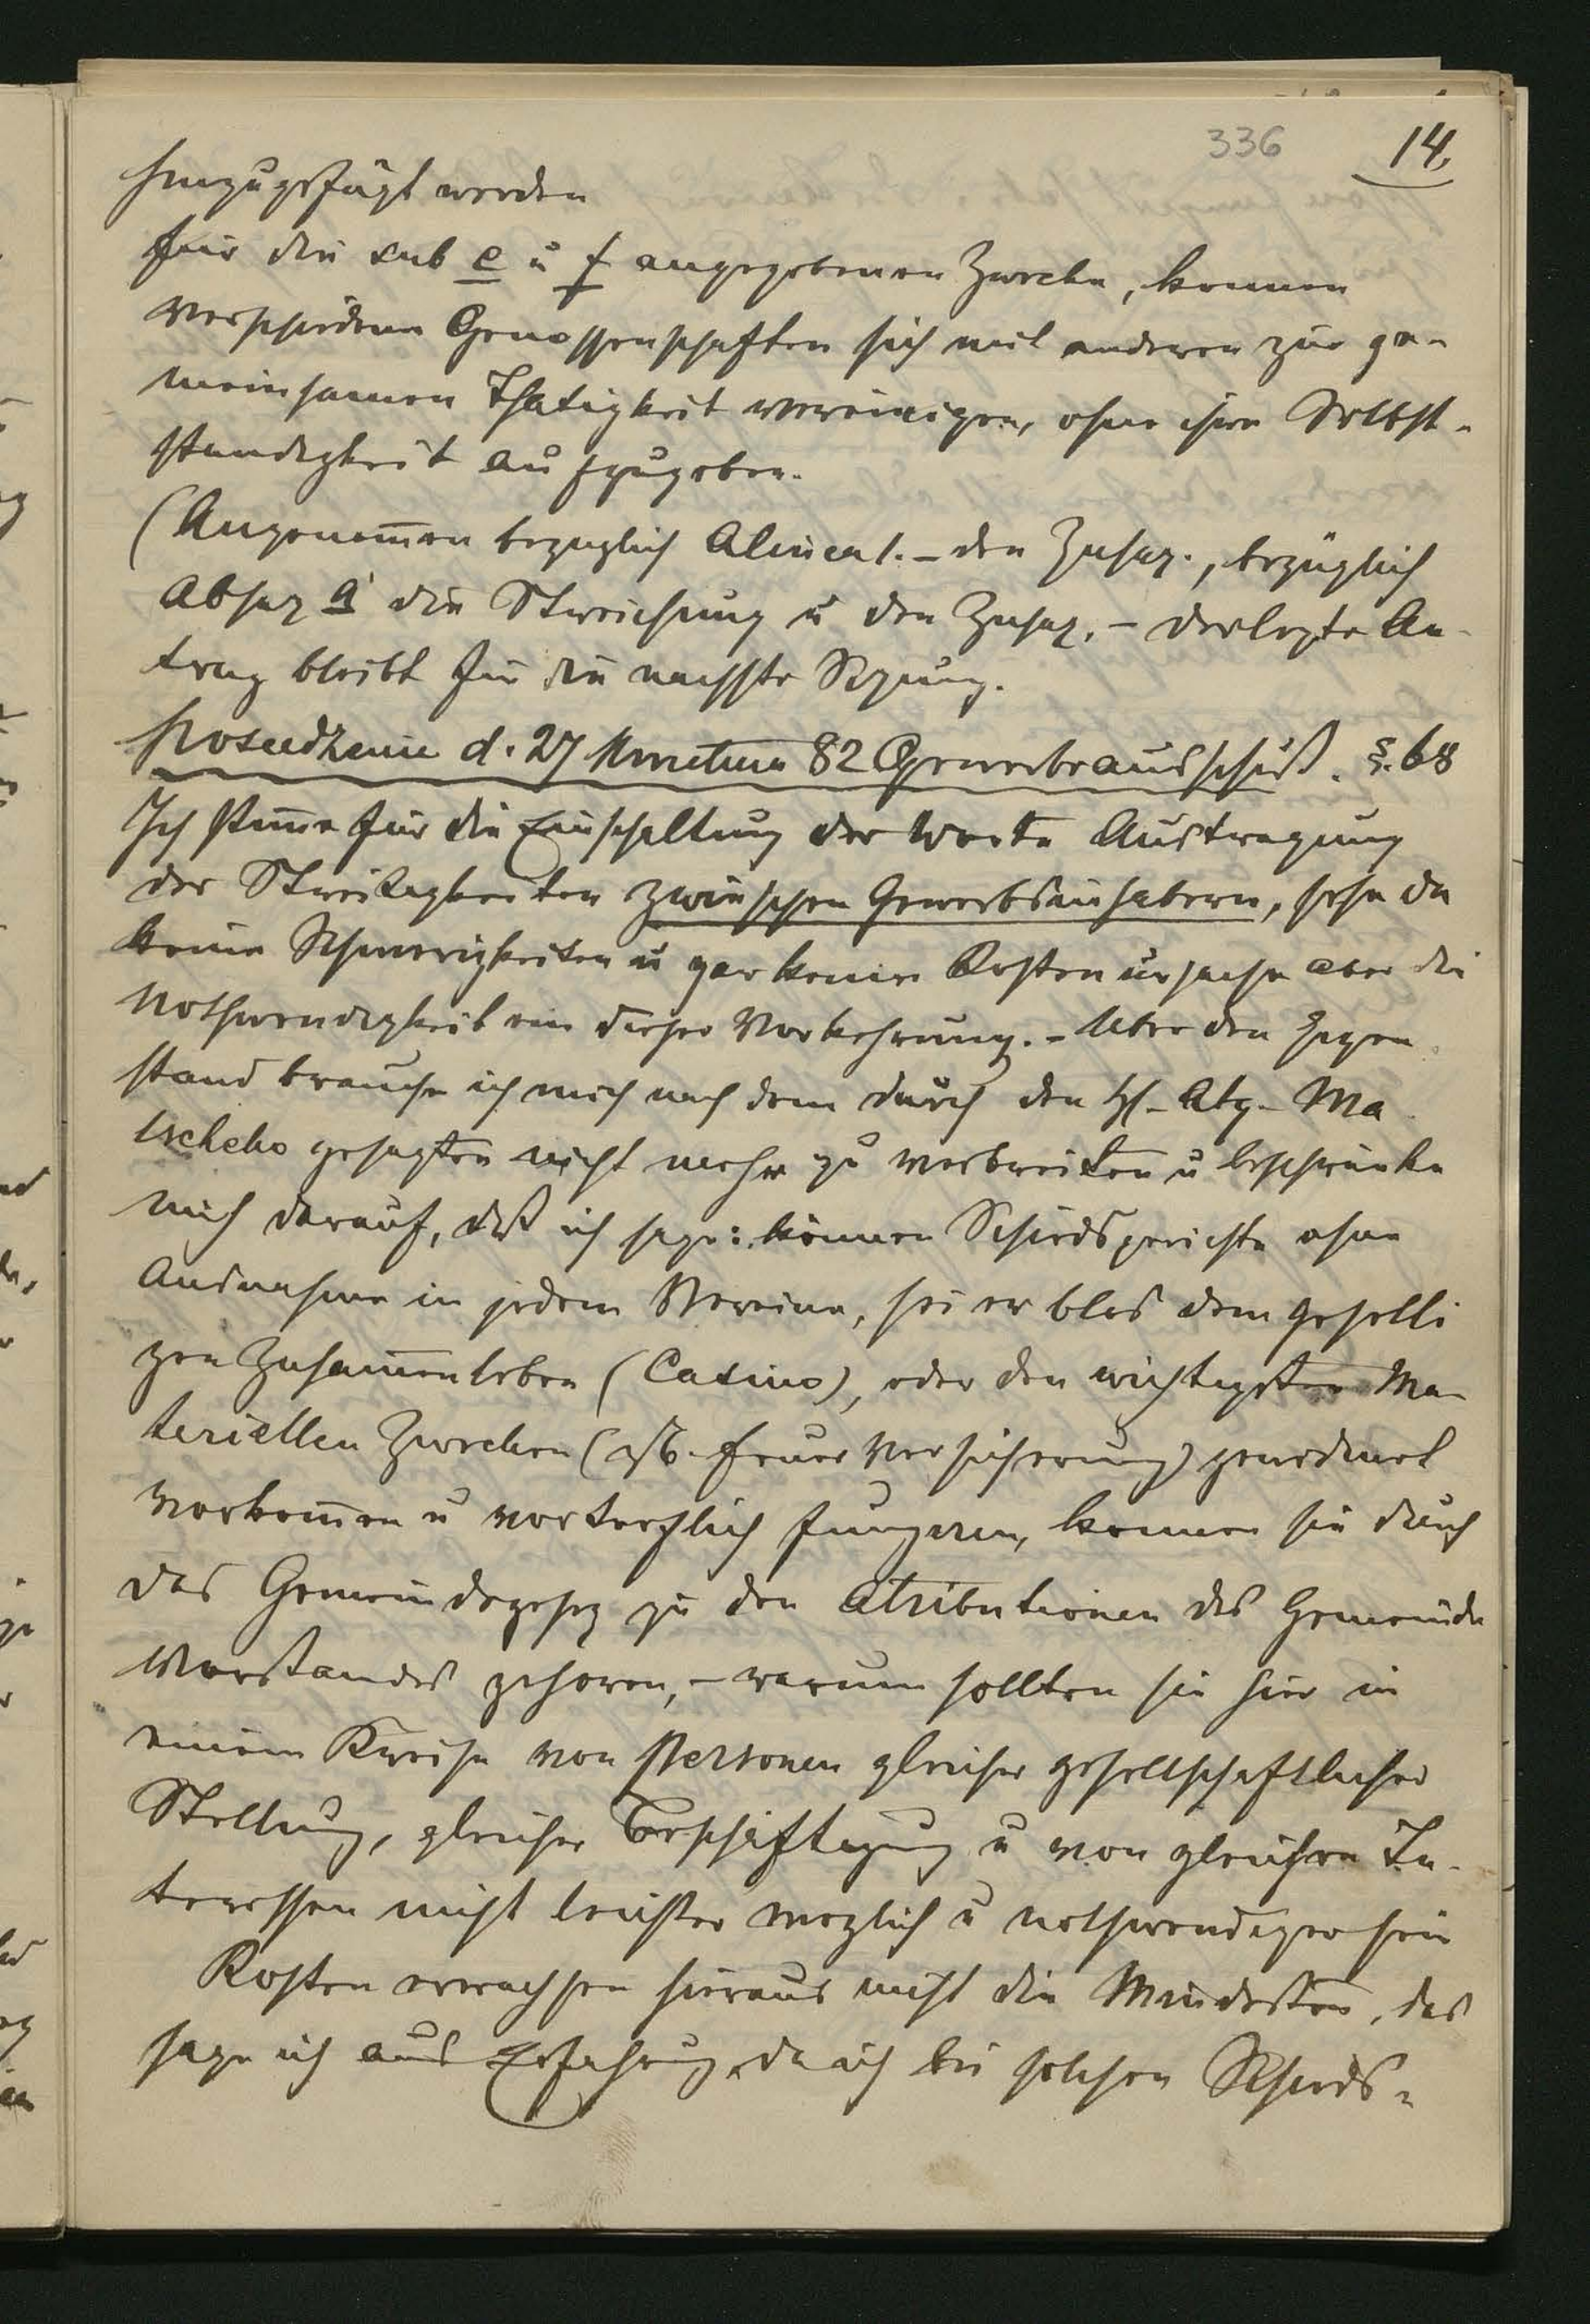 336 14.
hinzugefügt werden
für die sub e u f angegebenen Zwecke, können
verschiedene Genossenschaften sich mit anderen zur ge-
meinsamen Thätigkeit vereinigen, ohne ihre Selbst-
ständigkeit aufzugeben.
(Angenom̄en bezuglich Alinea 1. – den Zusaz., bezüglich
Absaz g die Streichung u den Zusaz. – der lezte An-
trag bleibt für die nachste Sizung.
Posiedzenie d. 27 Kwietnia 82 Gewerbeausschuß. §. 68
Ich stim̄e für die Einschaltung der Worte Austragung
der Streitigkeiten zwischen Gewerbsinhabern, sehe da
keine Schwerigkeiten u gar keine Kosten ursache aber die
Nothwendigkeit dieser Vorkehrung. – Uber den Gegen
stand brauche ich mich nach dem durch den H. Abg. Ma
tscheko gesagten nicht mehr zu verbreiten u beschränke
mich darauf, daß ich sage: können Schiedsgerichte ohne
Ausnahme in jedem Vereine, sei er blos dem geselli
gen Zusam̄enleben (Casino), oder den wichtigsten Ma-
teriellen Zwecken (zB. Feuer Versicherung) gewidmet
vorkom̄en u vortrefflich fungiren, konnen sie durch
das Gemeindegesez zu den Atributionen des Gemeinde
Vorstandes gehoren, – warum sollten sie hier in
einem Kreise von Personen gleicher gesellschaftlicher
Stellung, gleicher Beschäftigung u von gleichen In-
teressen nicht leichter moglich u nothwendiger sein
Kosten erwachsen hieraus nicht die Mindesten, das
sage ich aus Erfahrung, da ich bei solchen Schieds-